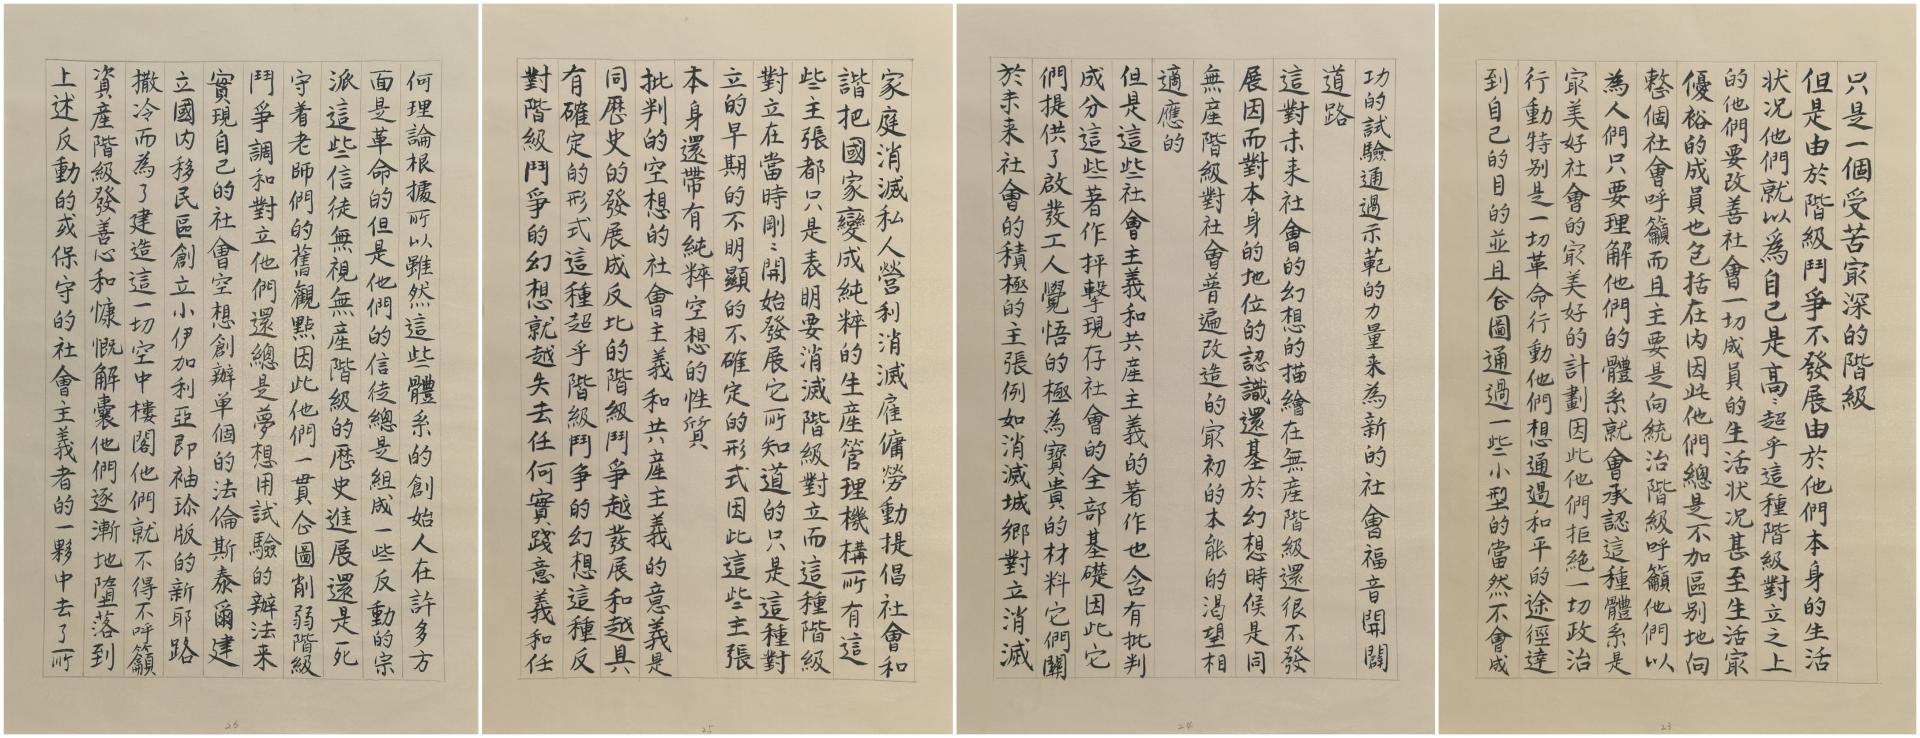 只是一個受苦冣深的階級
但是由於階級鬥爭不發展由於他們本身的生活
狀况他們就以爲自己是高〻超乎這種階級對立之上
的他們要改善社會一切成員的生活狀况甚至生活冣
優裕的成員也包括在内因此他們總是不加區别地向
整個社會呼籲而且主要是向統治階級呼籲他們以
為人們只要理解他們的體系就會承認這種體系是
冣美好社會的冣美好的計劃因此他們拒絶一切政治
行動特别是一切革命行動他們想通過和平的途徑達
到自己的目的並且企圖通過一些小型的當然不會成
功的試驗通過示範的力量来為新的社會福音開闢
道路
這對未来社會的幻想的描繪在無産階級還很不發
展因而對本身的地位的認識還基於幻想時候是同
無産階級對社會普遍改造的冣初的本能的渴望相
適應的
但是這些社會主義和共産主義的著作也含有批判
成分這些著作抨擊現存社會的全部基礎因此它
們提供了啟發工人覺悟的極為寶貴的材料它們關
於未来社會的積極的主張例如消滅城鄉對立消滅
家庭消滅私人營利消滅雇傭勞動提倡社會和
諧把國家變成純粹的生産管理機構所有這
些主張都只是表明要消滅階級對立而這種階級
對立在當時剛〻開始發展它所知道的只是這種對
立的早期的不明顯的不確定的形式因此這些主張
本身還帶有純粹空想的性質
批判的空想的社會主義和共産主義的意義是
同歷史的發展成反比的階級鬥爭越發展和越具
有確定的形式這種超乎階級鬥爭的幻想這種反
對階級鬥爭的幻想就越失去任何實踐意義和任
何理論根據所以雖然這些體系的創始人在許多方
面是革命的但是他們的信徒總是組成一些反動的宗
派這些信徒無視無産階級的歷史進展還是死
守着老師們的舊觀點因此他們一貫企圖削弱階級
鬥爭調和對立他們還總是夢想用試驗的辦法来
實現自己的社會空想創辦单個的法倫斯泰爾建
立國内移民區創立小伊加利亞即袖珍版的新耶路
撒冷而為了建造這一切空中樓閣他們就不得不呼籲
資産階級發善心和慷慨解囊他們逐漸地墮落到
上述反動的或保守的社會主義者的一夥中去了所
23
24
25
26